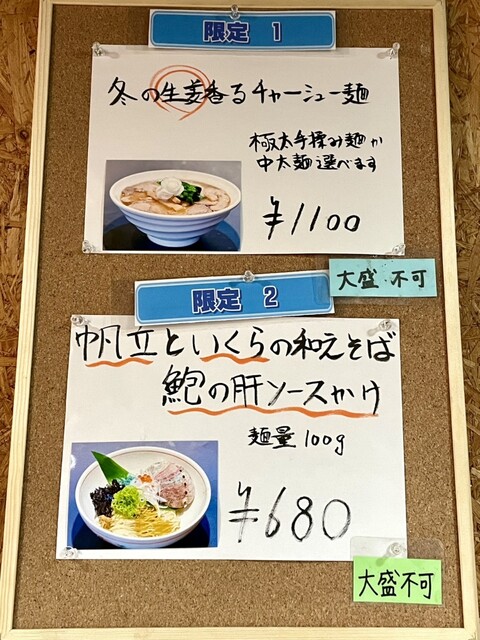 限定 1
冬の生姜香るチャーシュー麺
極太手揉み麺か
中太麺選べます
¥1100
大盛・不可
限定 2
帆立といくらの和えそば
鮑の肝ソースかけ
麺量100g
¥680
大盛不可